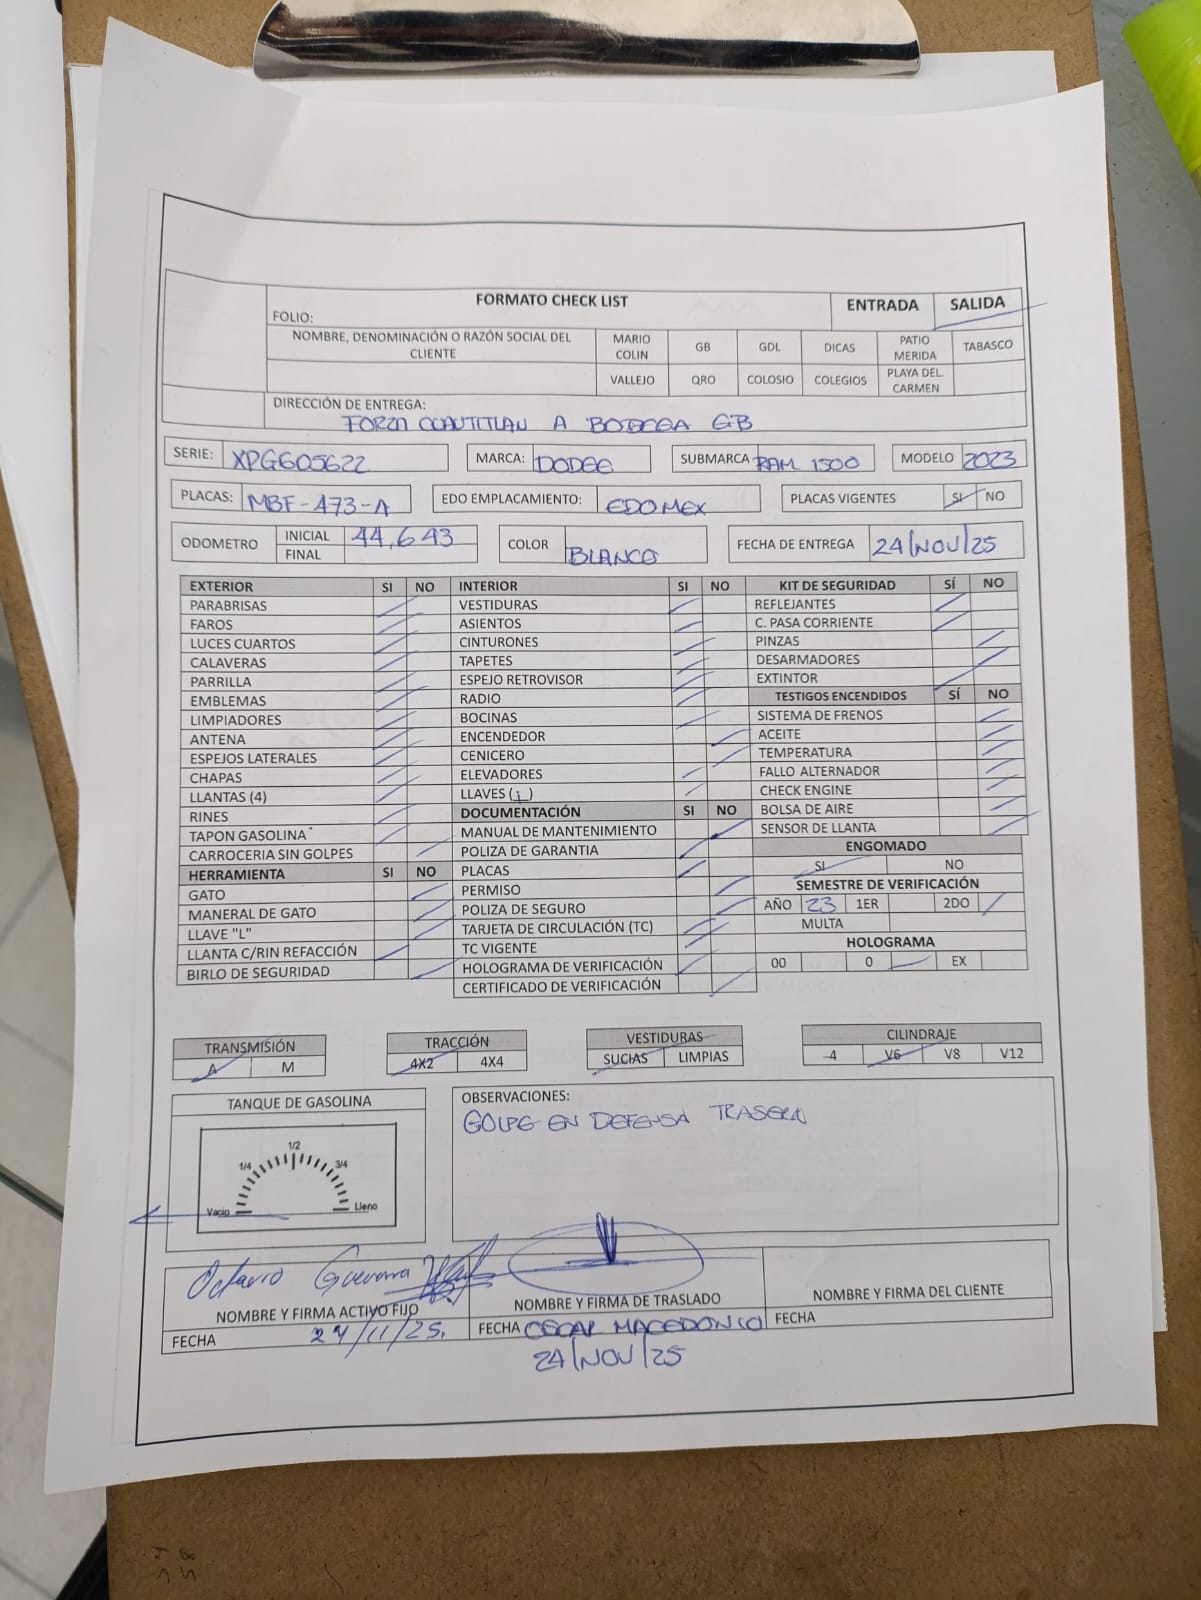 FORMATO CHECK LIST
ENTRADA
SALIDA
FOLIO:
NOMBRE, DENOMINACIÓN O RAZÓN SOCIAL DEL
CLIENTE
MARIO
COLIN
GB
GDL
DICAS
PATIO
MERIDA
TABASCO
VALLEJO
QRO
COLOSIO
COLEGIOS
PLAYA DEL.
CARMEN
DIRECCIÓN DE ENTREGA:
FORZA CUAUTITLAN A BODEGA GB
SERIE: XPG605622
MARCA: DODGE
SUBMARCA RAM 1500
MODELO 2023
PLACAS: MBF-473-A
EDO EMPLACAMIENTO: EDOMEX
PLACAS VIGENTES SI NO
ODOMETRO INICIAL 44,643
FINAL
COLOR BLANCO
FECHA DE ENTREGA 24/NOV/25
EXTERIOR SI NO
PARABRISAS
FAROS
LUCES CUARTOS
CALAVERAS
PARRILLA
EMBLEMAS
LIMPIADORES
ANTENA
ESPEJOS LATERALES
CHAPAS
LLANTAS (4)
RINES
TAPON GASOLINA
CARROCERIA SIN GOLPES
HERRAMIENTA SI NO
GATO
MANERAL DE GATO
LLAVE "L"
LLANTA C/RIN REFACCIÓN
BIRLO DE SEGURIDAD
INTERIOR SI NO
VESTIDURAS
ASIENTOS
CINTURONES
TAPETES
ESPEJO RETROVISOR
RADIO
BOCINAS
ENCENDEDOR
CENICERO
ELEVADORES
LLAVES (1)
DOCUMENTACIÓN SI NO
MANUAL DE MANTENIMIENTO
POLIZA DE GARANTIA
PLACAS
PERMISO
POLIZA DE SEGURO
TARJETA DE CIRCULACIÓN (TC)
TC VIGENTE
HOLOGRAMA DE VERIFICACIÓN
CERTIFICADO DE VERIFICACIÓN
KIT DE SEGURIDAD SÍ NO
REFLEJANTES
C. PASA CORRIENTE
PINZAS
DESARMADORES
EXTINTOR
TESTIGOS ENCENDIDOS SÍ NO
SISTEMA DE FRENOS
ACEITE
TEMPERATURA
FALLO ALTERNADOR
CHECK ENGINE
BOLSA DE AIRE
SENSOR DE LLANTA
ENGOMADO
SI NO
SEMESTRE DE VERIFICACIÓN
AÑO 23 1ER 2DO
MULTA
HOLOGRAMA
00 0 EX
TRANSMISIÓN
A M
TRACCIÓN
4X2 4X4
VESTIDURAS
SUCIAS LIMPIAS
CILINDRAJE
4 V6 V8 V12
TANQUE DE GASOLINA
1/2
1/4 3/4
Vacio Lleno
OBSERVACIONES:
GOLPE EN DEFENSA TRASERA
Octavio Guevara
NOMBRE Y FIRMA ACTIVO FIJO
FECHA 24/11/25.
NOMBRE Y FIRMA DE TRASLADO
FECHA
24/NOV/25
NOMBRE Y FIRMA DEL CLIENTE
FECHA